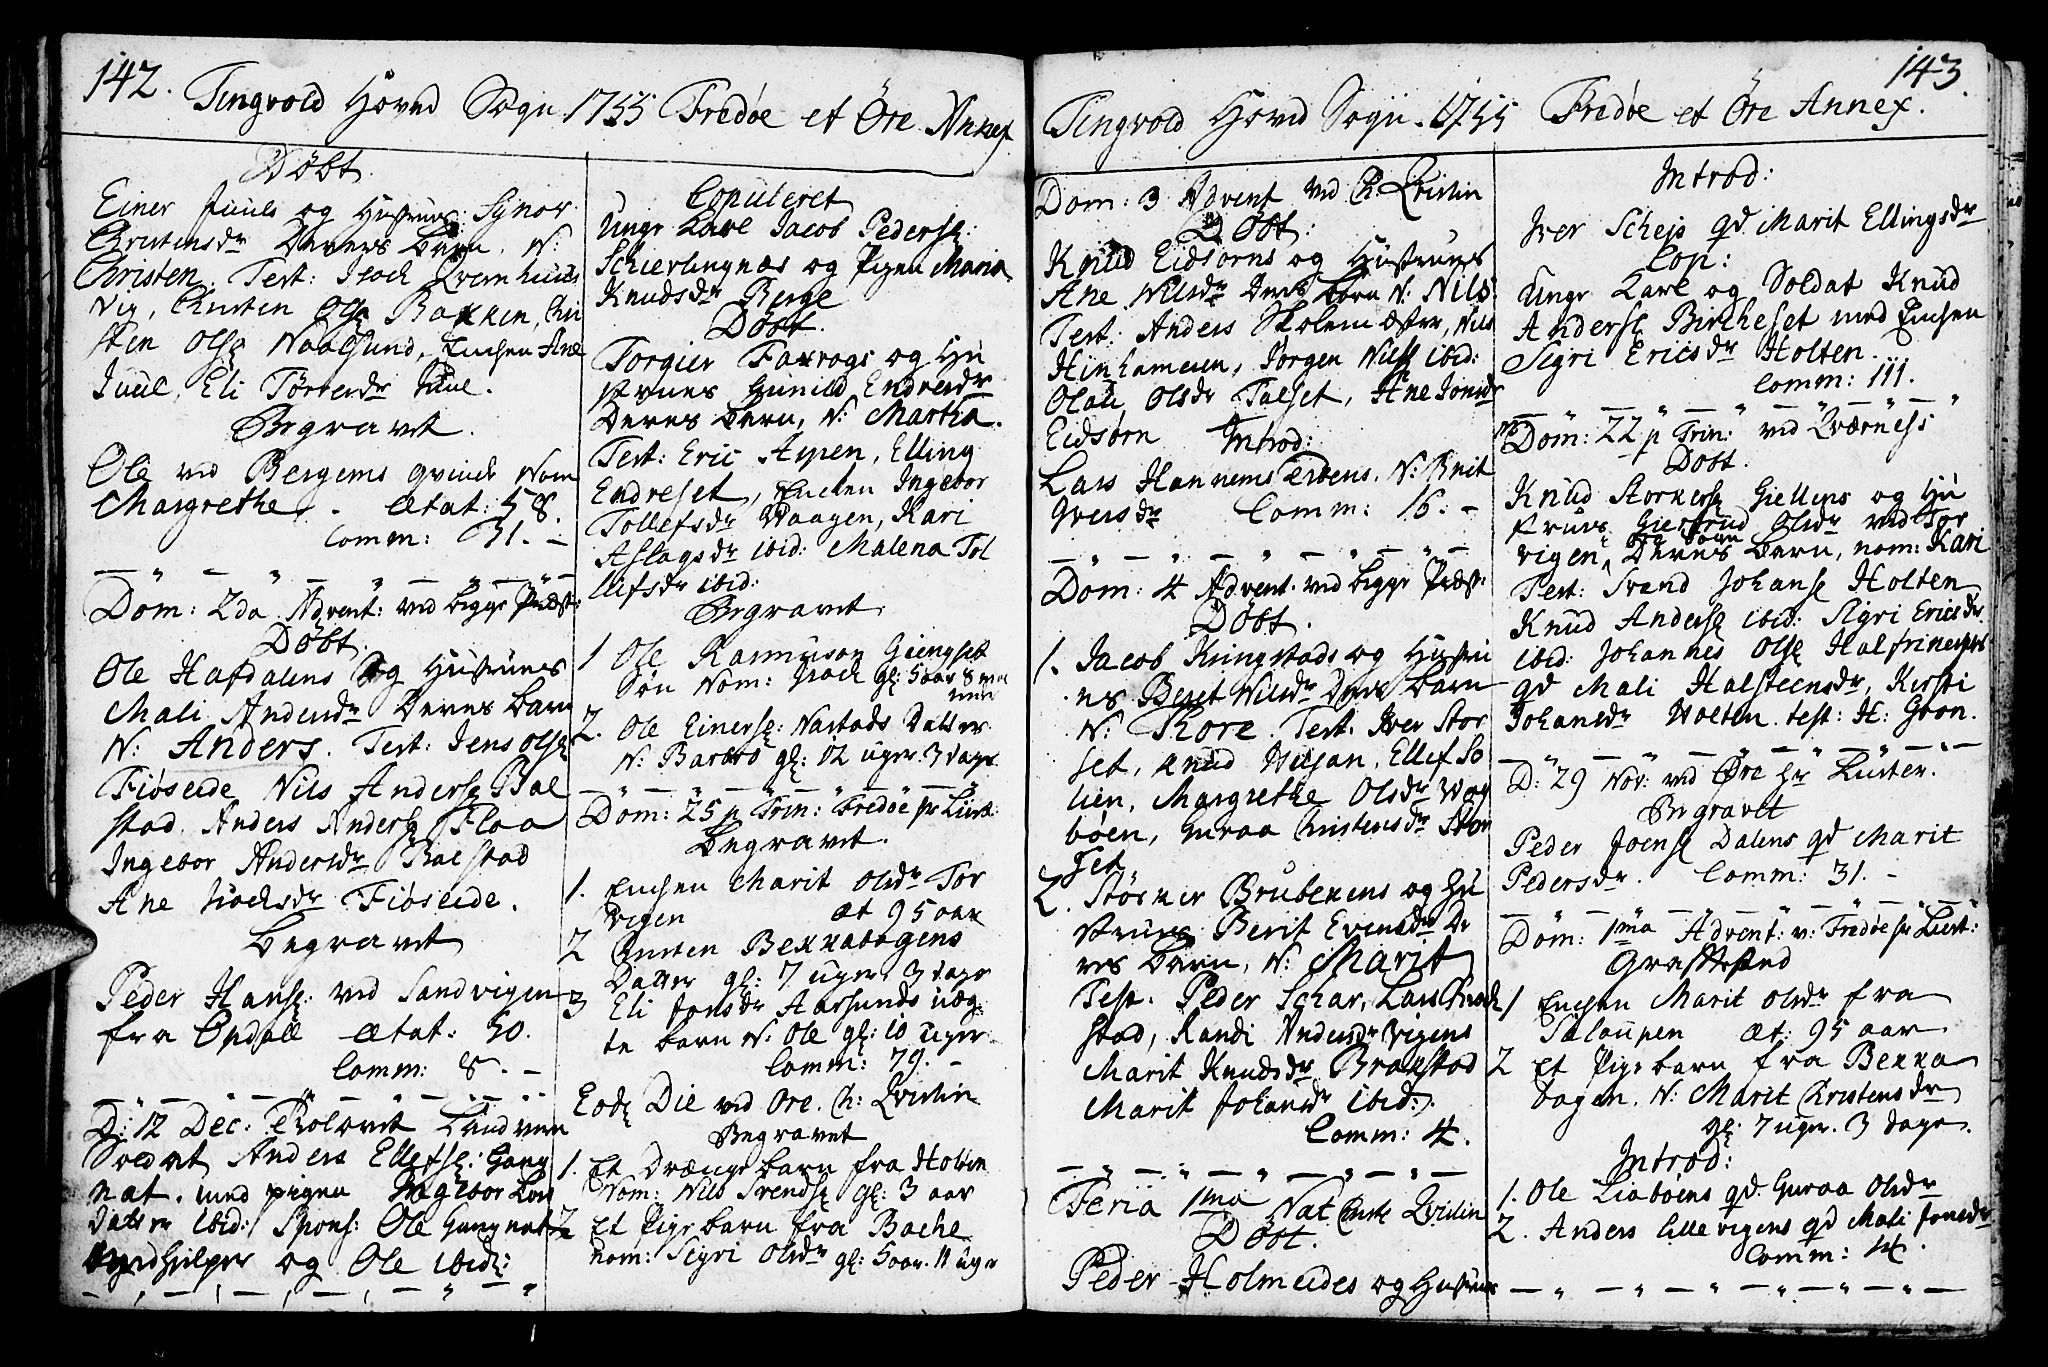 142. Tingvold Hoved Sogn 1755 Fredøe et Öre Annex
Døbt.
Einer Juuls og Hustrues Synor
Christensdr Deres Barn. N:
Christen. Test: Isach Qvernhuus
vig, Christen Olsø Bakken, Chri
sten Olsø Naalsund, Enchen Ane
Juul, Eli Torresdr Juul.
Begravet.
Ole ved Bergems qvinde Nom
Margrethe. Ætat: 58.
Comm: 31. -
Dom: 2da Advent: ved begge Præst:
Døbt.
Ole Hafdalens og Hustrues
Mali Andersdr Deres barn
N: Anders. Test: Jens Olsø
Fiøseide Nils Andersø Bal
stad. Anders Andersø Flaa
Ingebor Andersdr Balstad
Ane Isachsdr Fiøseide.
Begravet
Peder Hansø: ved Sandvigen
fra Opdall Ætat: 50.
Comm: 8. -
D: 12 Dec: Trolovet Landvern
Soldat Anders Ellefsø: Gang
nat. med pigen Ingebor Lars
datter ibid: Spons: Ole Gangnat
og Ole ibid:
Copuleret
Unge Karl Jacob Pedersø:
Schierlingnæs og Pigen Maria
Knudsdr Berge
Døbt.
Torgier Foxrogs og Hu
strues Gunild Endresdr
Deres barn, N: Martha.
Test: Eric Aspen, Elling
Endreset, Enchen Ingebor
Tollefsdr Waagen, Kari
Aslagsdr ibid: Malena Tol
llifsdr ibid:
Begravet
1 Ole Rasmuson Giengset
Søn Nom: Isach gl: 5 aar 8 maa
neder
2. Ole Einersø: Nastads Datter
N: Barbro gl: 12 uger 3 dage
Dom: 25 p Trin: Fredøe
Begravet.
1. Enchen Marit Olsdr Tor
vigen æt 95 aar
2 Christen Bekkabogens
Datter gl: 7 uger 3 dage
3 Eli Jonsdr Aarsunds uæg
te barn N: Ole gl: 10 uger
Comm: 79. -
Eod: Die ved Øre. Qvislin
Begravet
1. Et Drænge barn fra Holten
Nom: Nils Svendsø gl: 3 aar
2 Et Pige barn fra Bache
nom: Sigri Olsdr gl: 5 aar 11 uger
143.
Tingvold Hoved Sogn 1755 Fredøe et Öre Annex.
Dom: 3 Advent ved Qvislin
Døbt:
Knud Eidsørns og Hustrues
Ane Nilsdr Deres barn N: Nils
Test: Anders Skolemester, Nils
Hinhammeren, Jørgen Nilsø ibid:
Olava Olsdr Talset, Ane Jonsdr
Eidsørn Introd:
Lars Hannems N: Brit
Iversdr Comm: 16. -
Dom: 4 Advent. ved begge Præst:
Døbt.
1. Jacob Kringstads og Hustru
es Beret Nilsdr Deres barn
N: Thore. Test. Iver Stor
set, Knud Husan, Ellef So
lien, Margrethe Olsdr Wog
bøen, Guraa Christensdr Stor
set
2. Størker Brubekens og Hu
strues Berit Evensdr De
res barn, N: Marit
Test. Peder Schar, Lars Brach
stad, Randi Andersdr Vigens
Marit Knudsdr Brakstad
Marit Johansdr ibid:
Comm: 4.
Feria 1ma Nat Christi Qvislin
Døbt.
Peder Holmeides og Hustrues
Introd:
Iver Schejs qd. Marit Ellingsdr
Cop:
Unge Karl og Soldat Knud
Andersø Bircheset med Enchen
Sigri Ericsdr Holten.
Comm: 111.
Dom: 22 p Trin: ved Qværness
Døbt.
Knud Storkersø Giellens og Hu
strues Giertrud Olsdr ved Tor
vigen, Deres barn, nom: Kari
Test: Svend Johansø Holten
Knud Andersø ibid: Sigri Ericsdr
ibid: Johannes Olsø
qd Mali Halsteensdr, Kersti
Johansdr Holten. test: H: Gron.
D: 29 Nov: ved Øre hr
Begravet
Peder Joensø Dalens qd Marit
Pedersdr. Comm: 31. -
Dom: 1ma Advent: v: Fredøe
Graffæst
1 Enchen Marit Olsdr fra
Saltaupen æt: 95 aar
2 Et Pige barn fra Bekka
bogen. N: Marit Christensdr
gl: 7 uger. 3 dage.
Introd:
1. Ole Liabøens qd. Guraa Olsdr
2. Anders Lillevigens qd Mali Jonsdr
Comm: